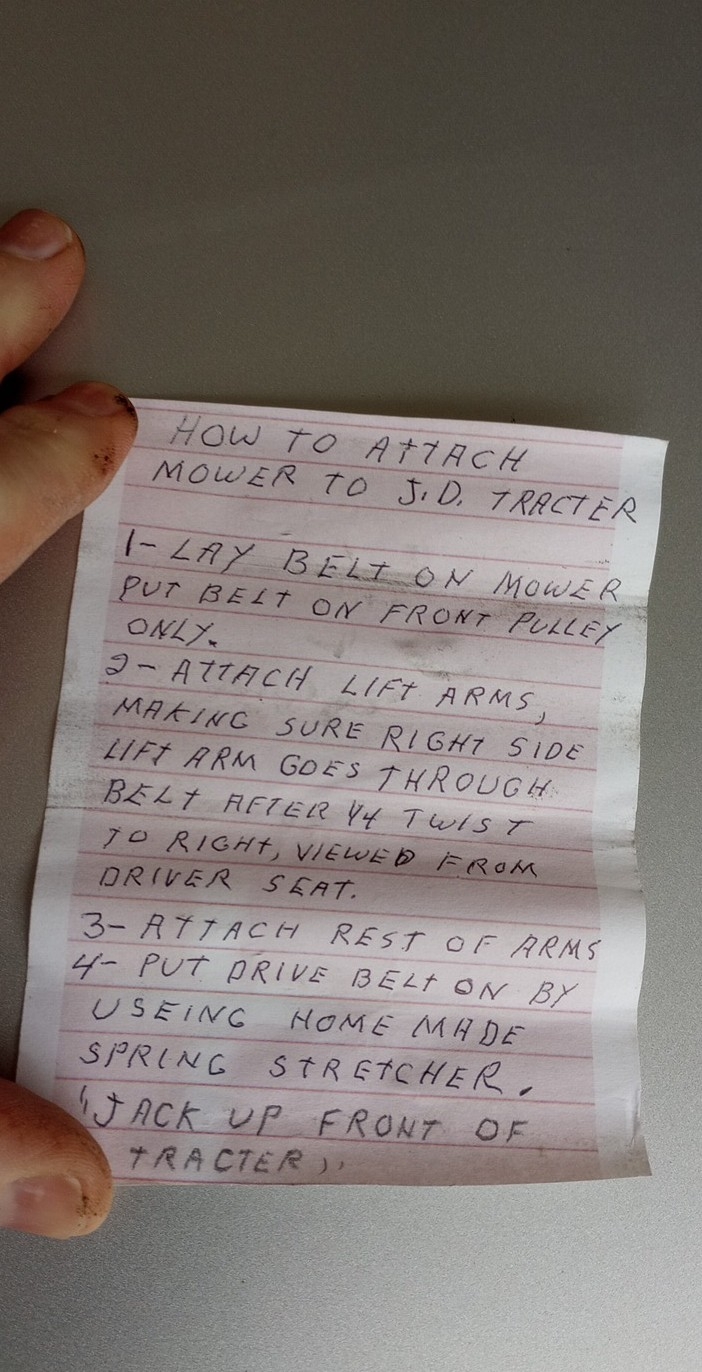 HOW TO ATTACH
MOWER TO J.D. TRACTER
1- LAY BELT ON MOWER
PUT BELT ON FRONT PULLEY
ONLY.
2- ATTACH LIFT ARMS,
MAKING SURE RIGHT SIDE
LIFT ARM GOES THROUGH
BELT AFTER 1/4 TWIST
TO RIGHT, VIEWED FROM
DRIVER SEAT.
3- ATTACH REST OF ARMS
4- PUT DRIVE BELT ON BY
USEING HOME MADE
SPRING STRETCHER.
"JACK UP FRONT OF
TRACTER)."